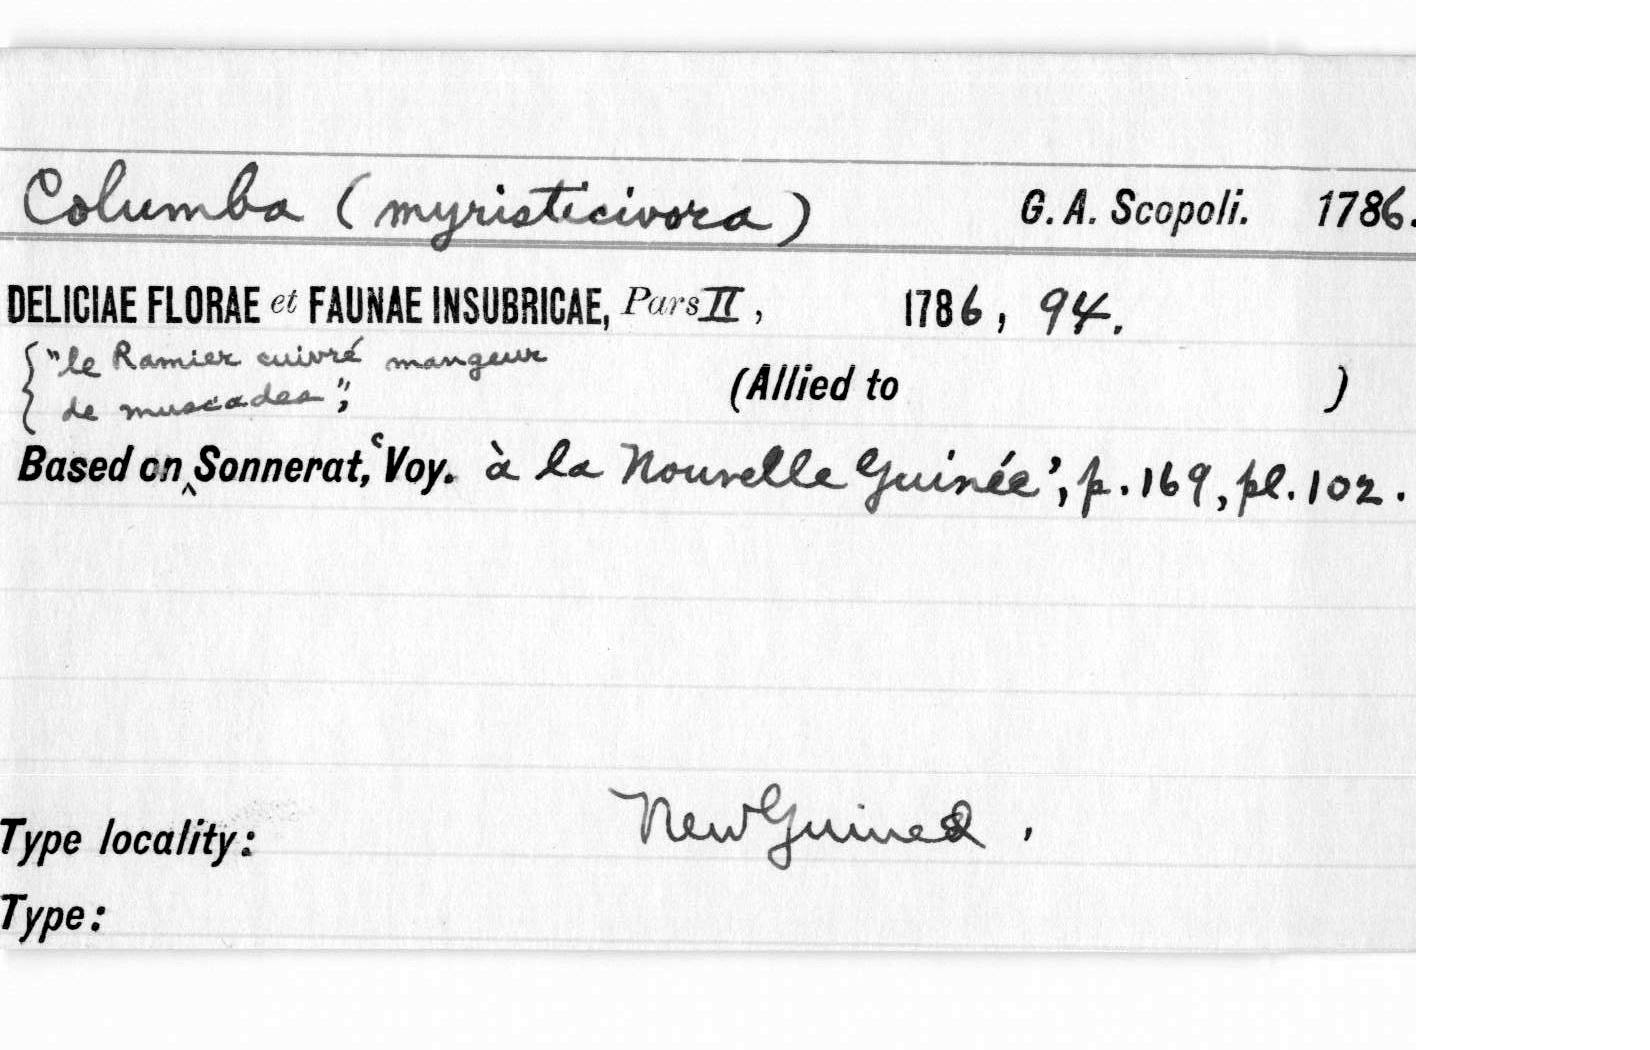 Columba (myristicivora) G. A. Scopoli. 1786.
DELICIAE FLORAE et FAUNAE INSUBRICAE, Pars II, 1786, 94.
{"le Ramier cuivré mangeur
de muscades", (Allied to )
Based on ‸ Sonnerat, ‘Voy. à la Nouvelle Guinée’, p. 169, pl. 102.
Type locality: New Guinea.
Type: